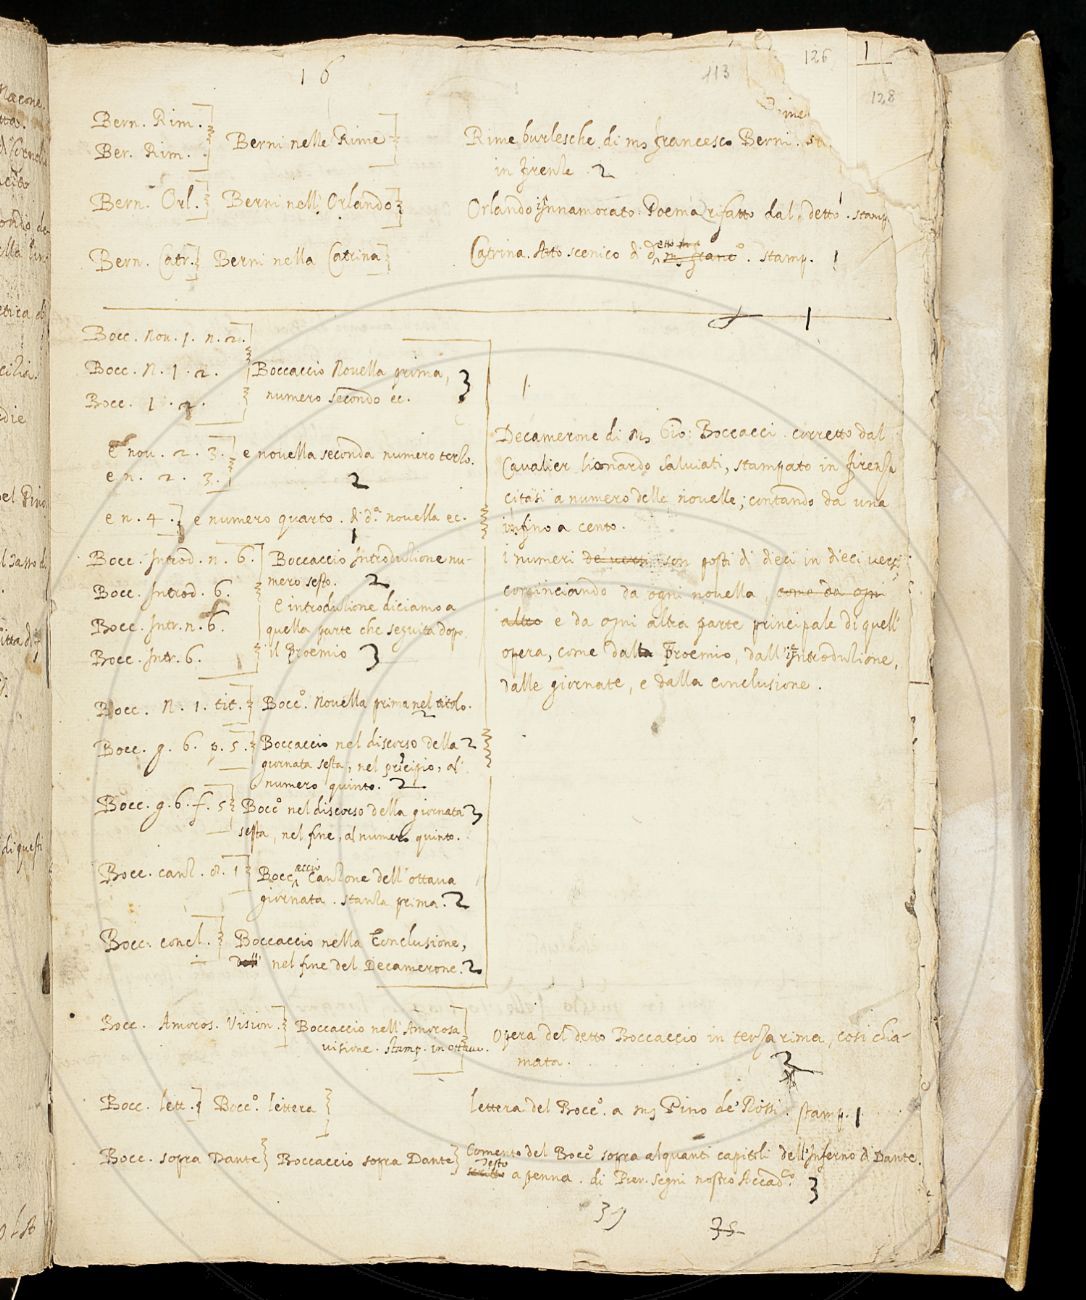 16
113
126
1
128
Rime
Bern. Rim.
Ber. Rim.
Berni nelle Rime
Rime burlesche di mͦ francesco Berni. sta
in firenze 2
Bern. Orl.
Berni nell' Orlando
Orlando Innamorato. Poema rifatto dal detto. stamp
1
Bern. Catr.
Berni nella Catrina
Catrina. Atto scenico di d. stamp. 1
1
Bocc. nov. 1. n. 2.
Bocc. N. 1. 2.
Bocc. 1. 2.
Boccaccio Novella prima,
numero secondo ec.
3
E nov. 2. 3.
e n. 2. 3.
e novella seconda numero terzo.
2
e n. 4.
e numero quarto. di d.ª novella ec.
1
Bocc. Introd. n. 6.
Bocc. Introd. 6.
Bocc. Intr. n. 6.
Bocc. Intr. 6.
Boccaccio Introduzione nu-
mero sesto. 2
E introduzione diciamo a
quella parte che seguita dopo
il Proemio 3
Bocc. N. 1. tit.
Bocc.º Novella prima nel titolo.
2
Bocc. g. 6. p. 5.
Boccaccio nel discorso della 2
giornata sesta, nel pricipio, al
numero quinto. 2
Bocc. g. 6. f. 5
Bocc.º nel discorso della giornata 3
sesta, nel fine, al numero quinto.
Bocc. canz. 8. 1
Boccaccio Canzone dell' ottava
giornata. stanza prima. 2
Bocc. concl.
Boccaccio nella Conclusione,
dell' nel fine del Decamerone. 2
1.
Decamerone di M. Gio: Boccacci. corretto dal
Cavalier Lionardo Salviati, stampato in firenze
citasi a numero delle novelle, contando da una
infino a cento.
I numeri de versi son posti di dieci in dieci versi,
cominciando da ogni novella, come da ogn
altro e da ogni altra parte principale di quell'
opera, come dal Proemio, dall' Introduzione,
dalle giornate, e dalla conclusione.
Bocc. Amoros. Vision.
Boccaccio nell' Amorosa
visione. stamp. in ottavo.
Opera del detto Boccaccio in terza rima, così chia-
mata.
2
Bocc. lett.
Bocc.º lettera
lettera del Bocc.º a mͦ Pino de' Rossi. stamp. 1
Bocc. sopra Dante
Boccaccio sopra Dante
Comento del Bocc.º sopra alquanti capitoli dell' Inferno di Dante.
testo a penna. di Pier. Segni nostro Accad.co 3
39
38